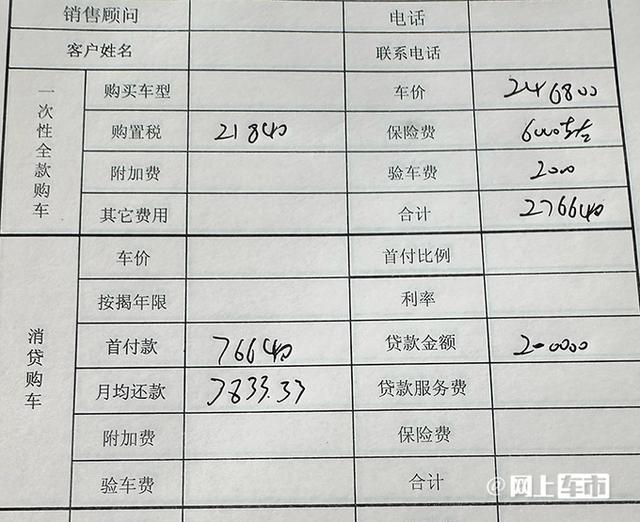 销售顾问 电话
客户姓名 联系电话
一次性全款购车
购买车型 车价 246800
购置税 21840 保险费 6000左右
附加费 验车费 2000
其它费用 合计 276640
消贷购车
车价 首付比例
按揭年限 利率
首付款 76640 贷款金额 200000
月均还款 7833.33 贷款服务费
附加费 保险费
验车费 合计
@网上车市